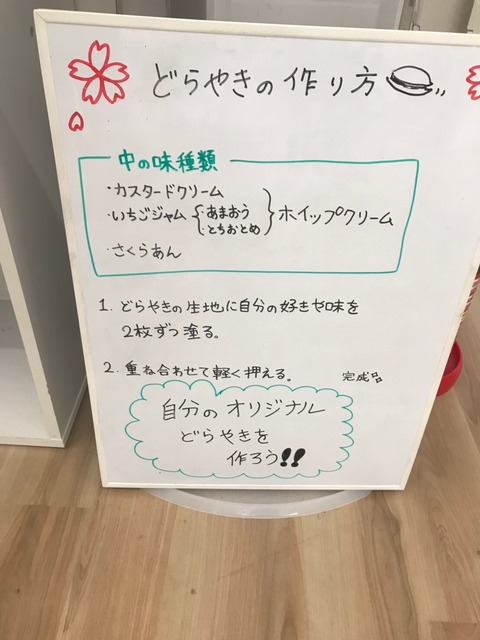 どらやきの作り方
中の味種類
・カスタードクリーム
・いちごジャム{・あまおう
・とちおとめ}ホイップクリーム
・さくらあん
1. どらやきの生地に自分の好きな味を
2枚ずつ塗る。
2. 重ね合わせて軽く押える。
完成品
自分のオリジナル
どらやきを
作ろう!!